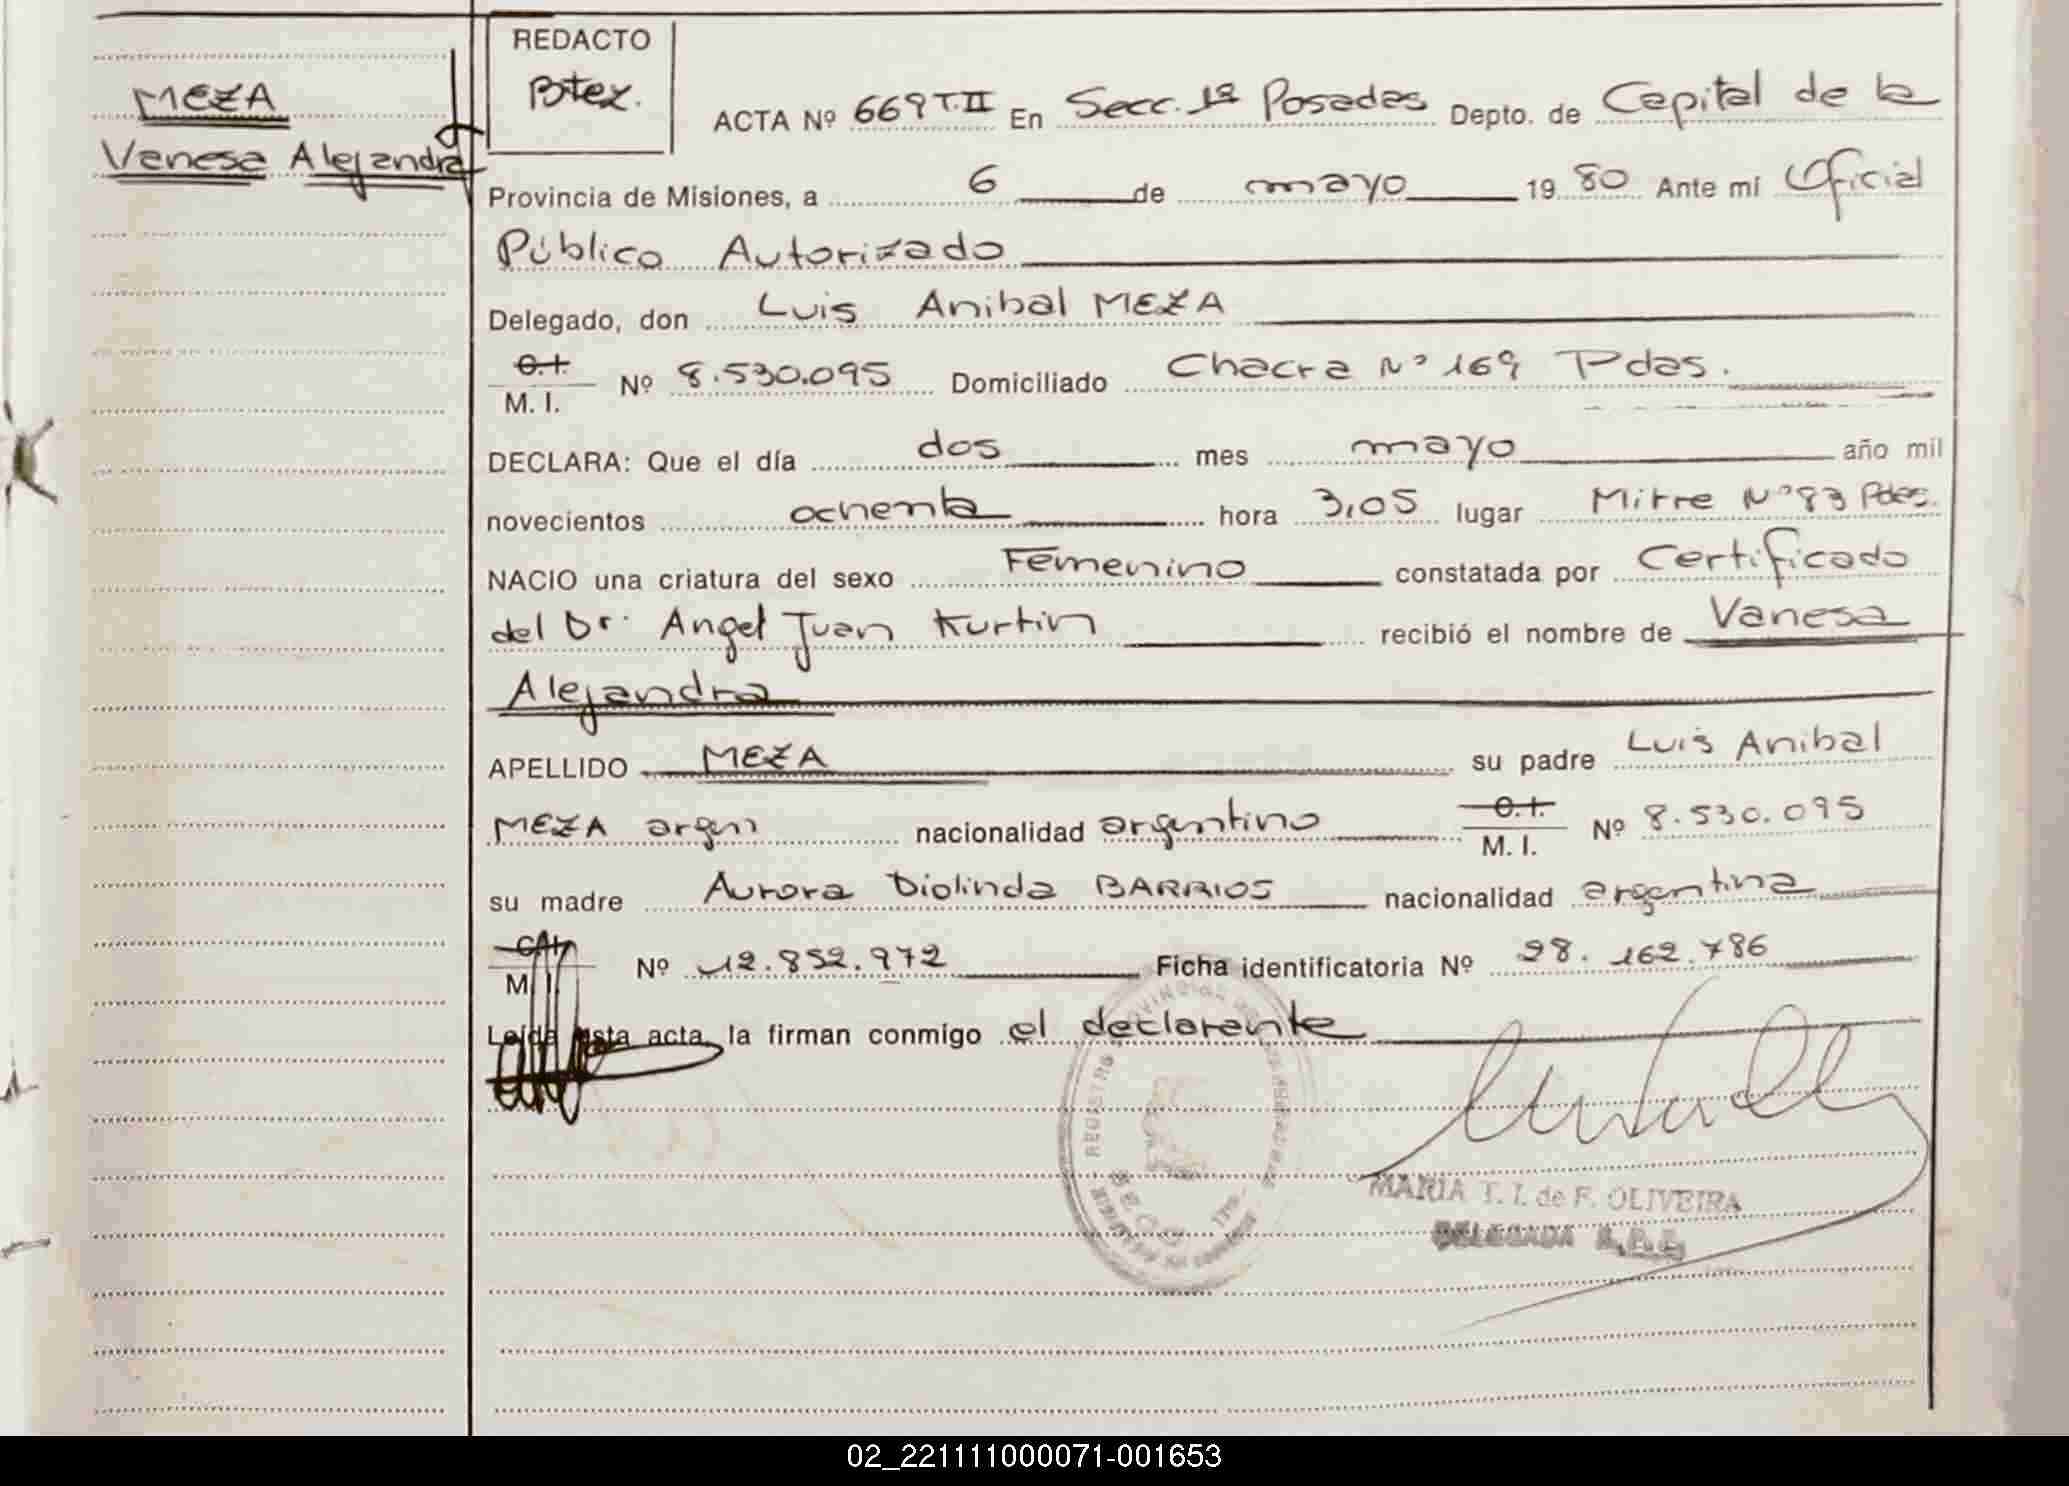 MEZA
Vanesa Alejandra
REDACTO
Btez.
ACTA Nº 669 T.II En Secc. 1ª Posadas Depto. de Capital de la
Provincia de Misiones, a 6 de mayo 1980 Ante mí Oficial
Público Autorizado
Delegado, don Luis Anibal MEZA
C.I.
M. I. Nº 8.530.095 Domiciliado Chacra Nº 169 Pdas.
DECLARA: Que el día dos mes mayo año mil
novecientos ochenta hora 3,05 lugar Mitre Nº 83 Pdas.
NACIO una criatura del sexo Femenino constatada por Certificado
del Dr. Angel Juan Kurtin recibió el nombre de Vanesa
Alejandra
APELLIDO MEZA su padre Luis Anibal
MEZA argen nacionalidad argentino C.I. M. I. Nº 8.530.095
su madre Aurora Diolinda BARRIOS nacionalidad argentina
C.I.
M. I. Nº 12.852.972 Ficha identificatoria Nº 28.162.786
Leída esta acta, la firman conmigo el declarante
MARIA T. I. de F. OLIVEIRA
DELEGADA R.P.P.
02_221111000071-001653